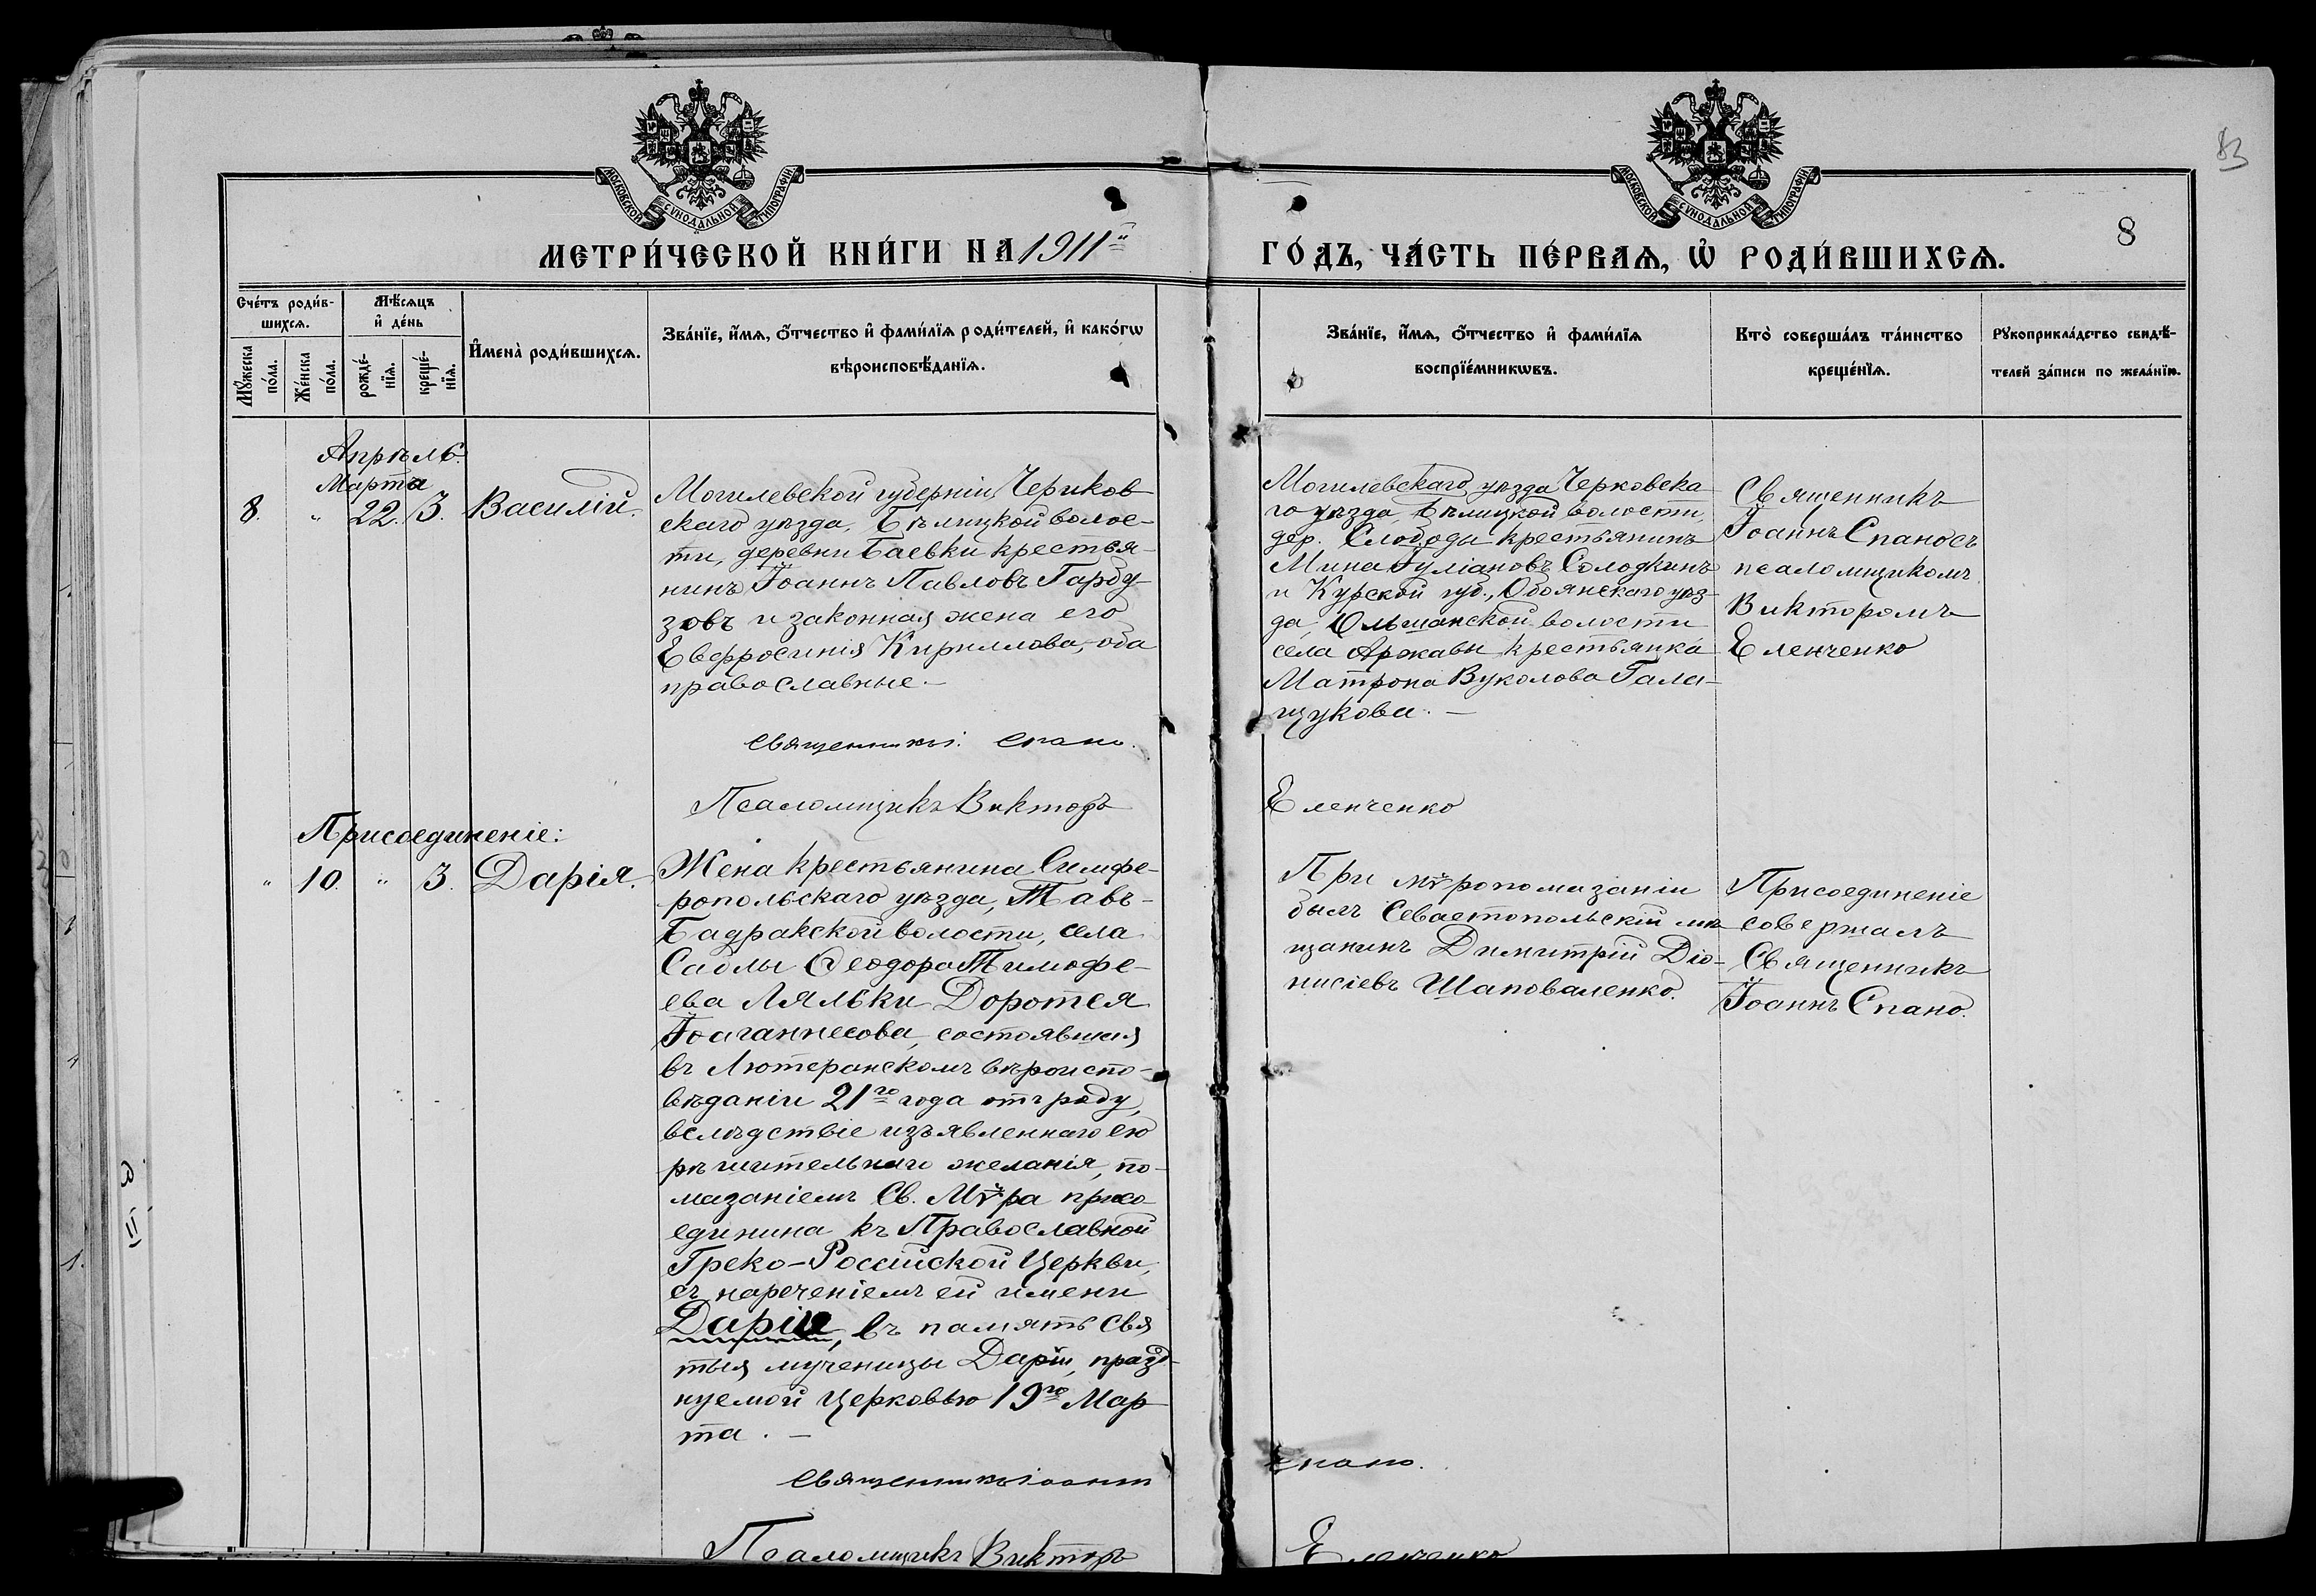 МОСКОВСКОЙ СУНОДАЛЬНОЙ ТИПОГРАФІИ
МОСКОВСКОЙ СУНОДАЛЬНОЙ ТИПОГРАФІИ
83
8
МЕТРИ́ЧЕСКОЙ КНИ́ГИ НА 1911й
ГО́ДЪ, ЧА́СТЬ ПЕ́РВАѦ, Ѡ҆ РОДИ́ВШИХСѦ.
Сче́тъ роди́в-
шихсѧ.
Мѣ́сѧцъ
и҆ де́нь
Мꙋ́жеска
по́ла.
Же́нска
по́ла.
рожде́-
нїѧ.
креще́-
нїѧ.
И҆мена̀ роди́вшихсѧ.
Зва́нїе, и҆́мѧ, о҆́тчество и҆ фами́лїѧ роди́телей, и҆ како́гѡ
вѣроисповѣ́данїѧ.
Зва́нїе, и҆́мѧ, о҆́тчество и҆ фами́лїѧ
воспрїе́мникѡвъ.
Кто̀ соверша́лъ та́инство
креще́нїѧ.
Рꙋкоприкла́дство свидѣ́-
телей за́писи по жела́нїю.
Апрѣль.
Марта
8. " 22. 3. Василій.
Могилевской губерніи, Чериков-
скаго уѣзда, Бѣлицкой волос-
ти, деревни Баевки крестья-
нинъ Іоаннъ Павловъ Гарбу-
зовъ и законная жена его
Евфросинія Кириллова, оба
православные.—
Могилевскаго уѣзда Черковска-
го уѣзда, Бѣлицкой волости,
дер. Слободы крестьянинъ
Мина Іуліановъ Солодкинъ
и Курской губ., Обоянскаго уѣз-
да, Ольшанской волости
села Аржавы крестьянка
Матрона Вуколова Гала-
щукова.—
Священникъ
Іоаннъ Спано съ
псаломщикомъ
Викторомъ
Еленченко
Священникъ І. Спано.
Псаломщикъ Викторъ Еленченко
Присоединеніе:
" 10. " 3. Дарія.
Жена крестьянина Симфе-
ропольскаго уѣзда, Тавъ-
Бадракской волости, села
Саблы Ѳеодора Тимофе-
ева Ляльки Доротея
Іоаганнесова, состоявшая
въ Лютеранскомъ вѣроиспо-
вѣданіи 21го года отъ роду,
вслѣдствіе изъявленнаго ею
рѣшительнаго желанія, по-
мазаніемъ Св. Мѵра присо-
единина къ Православной
Греко-Россійской Церкви,
съ нареченіемъ ей имени
Дарія, въ память Свя
тыя мученицы Даріи, празд-
нуемой Церковью 19го Мар-
та.—
При мѵропомазаніи
былъ Севастопольскій мѣ-
щанинъ Димитрій Діо-
нисіевъ Шаповаленко.
Присоединеніе
совершалъ
Священникъ
Іоаннъ Спано.
Священникъ Іоаннъ Спано.
Псаломщикъ Викторъ Еленченко